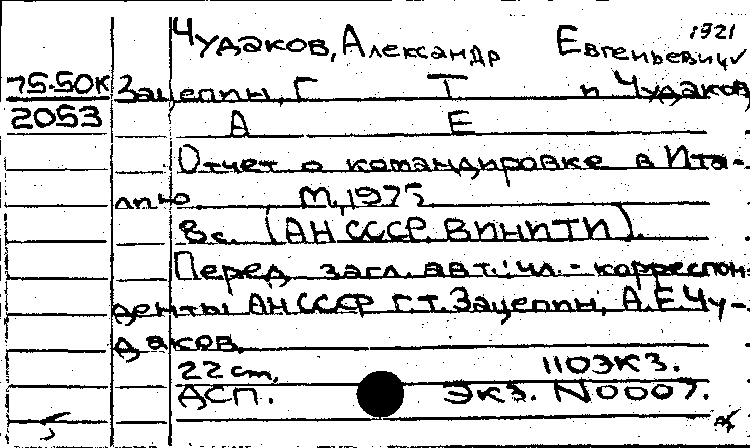 1921
Чудаков, Александр Евгеньевич
75-50К Зацепин, Г Т и Чудаков,
2053 А Е
Отчет о командировке в Ита-
лию. М., 1975
8с. (АН СССР. ВИНИТИ).
Перед загл. авт.: чл.-корреспон-
денты АН СССР Г.Т. Зацепин, А.Е. Чу-
даков.
22 cm. 110 экз.
ДСП. Экз. N0007.